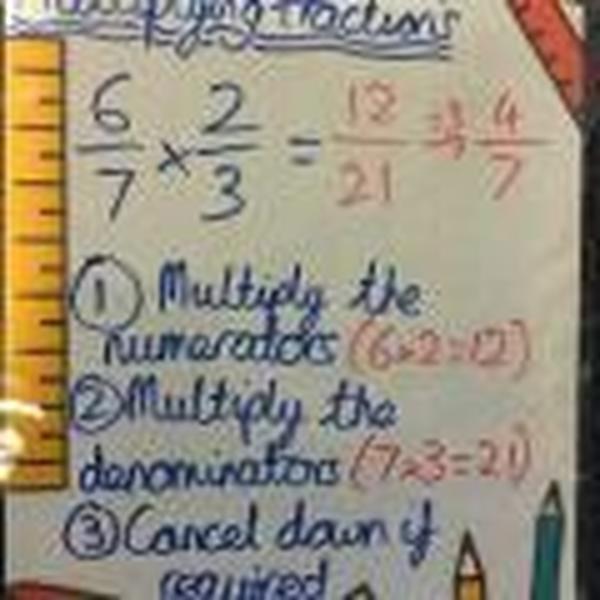 Multiplying fractions
6/7 × 2/3 = 12/21 ÷3→ 4/7
① Multiply the
numerators (6×2=12)
② Multiply the
denominators (7×3=21)
③ Cancel down if
required